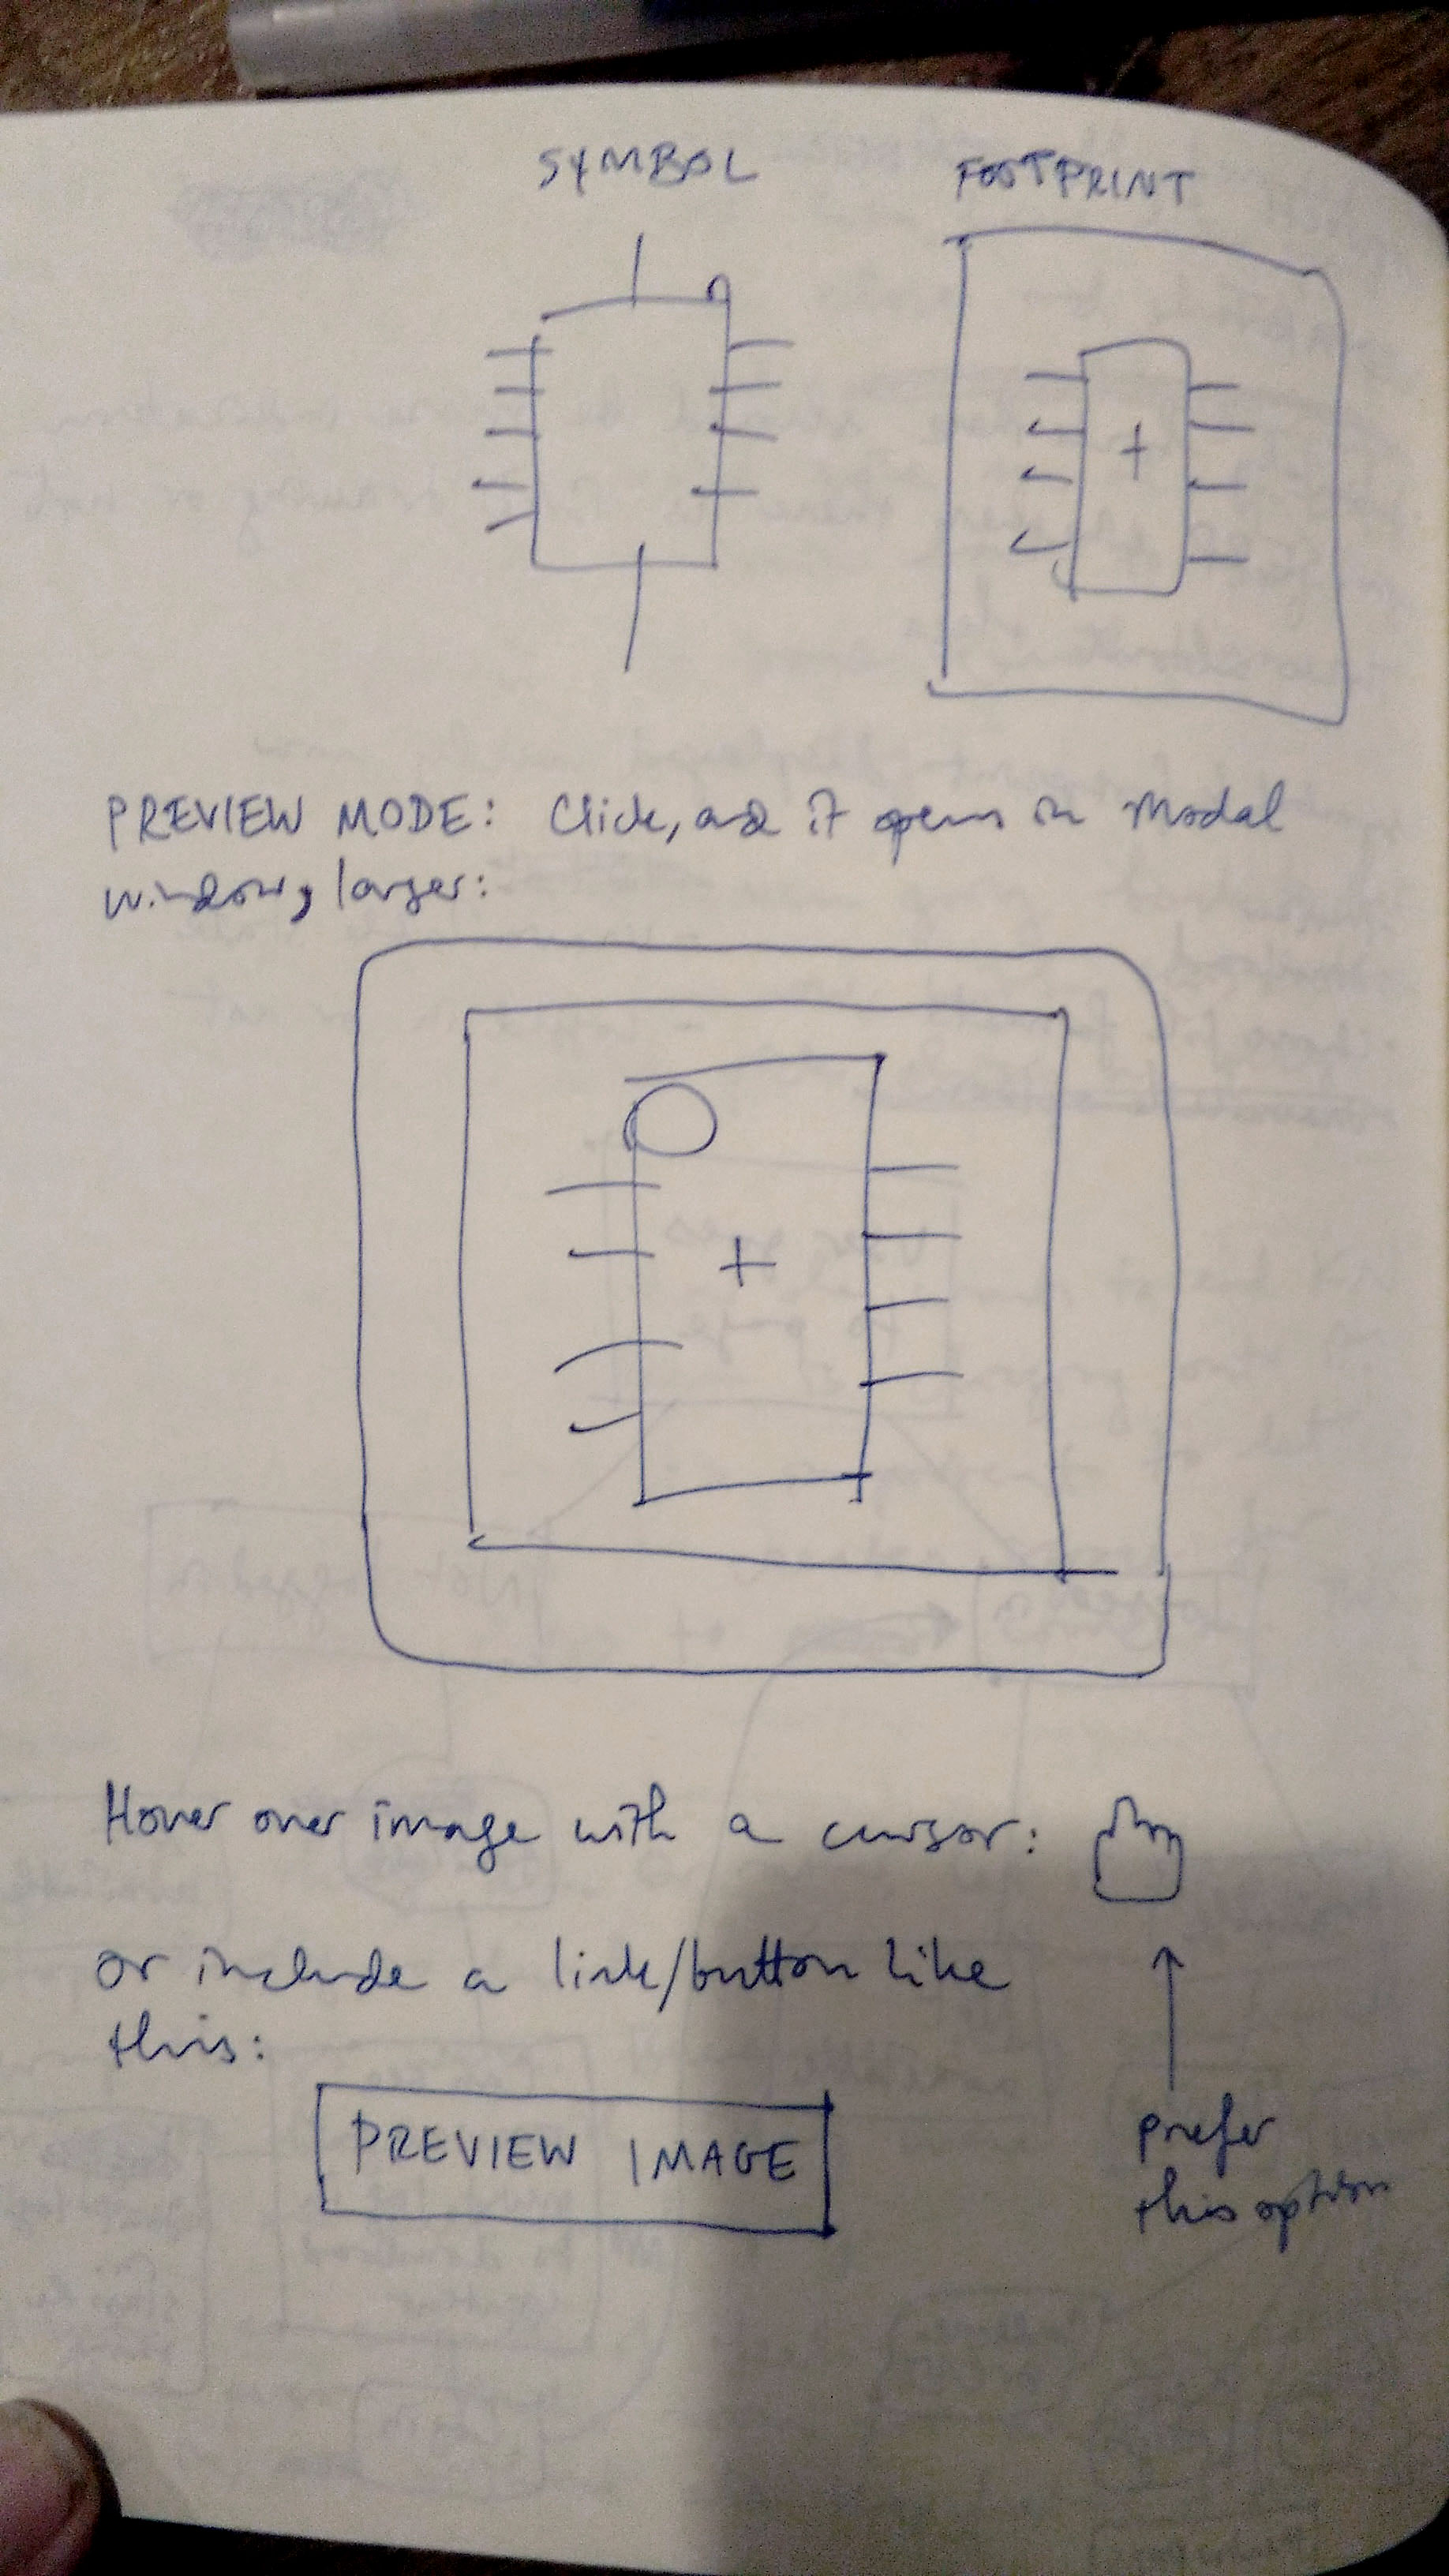 SYMBOL FOOTPRINT
PREVIEW MODE: Click, and it opens in modal
window, larger:
Hover over image with a cursor:
or include a link/button like
this:
PREVIEW IMAGE
prefer
this option